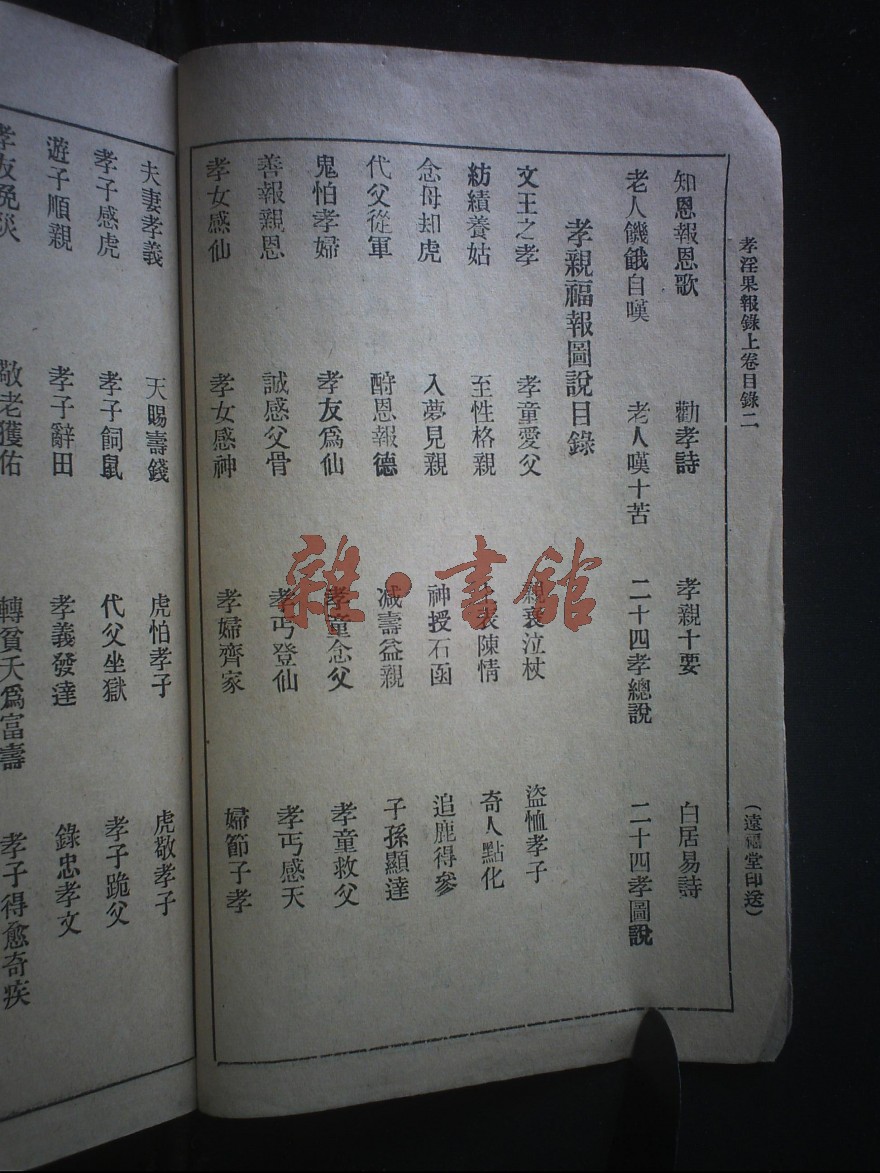 孝淫果報錄上卷目錄二　(遠福堂印送)
知恩報恩歌　勸孝詩　孝親十要　白居易詩
老人饑餓自嘆　老人嘆十苦　二十四孝總說　二十四孝圖說
孝親福報圖說目錄
文王之孝　孝童愛父　親衰泣杖　盜恤孝子
紡績養姑　至性格親　表陳情　奇人點化
念母却虎　入夢見親　神授石函　追鹿得參
代父從軍　酧恩報德　减壽益親　子孫顯達
鬼怕孝婦　孝友爲仙　孝童念父　孝童救父
善報親恩　誠感父骨　孝丐登仙　孝丐感天
孝女感仙　孝女感神　孝婦齊家　婦節子孝
夫妻孝義　天賜壽錢　虎怕孝子　虎敬孝子
孝子感虎　孝子飼鼠　代父坐獄　孝子跪父
遊子順親　孝子辭田　孝義發達　錄忠孝文
孝友免災　敬老獲佑　轉貧夭爲富壽　孝子得愈奇疾
雜·書館